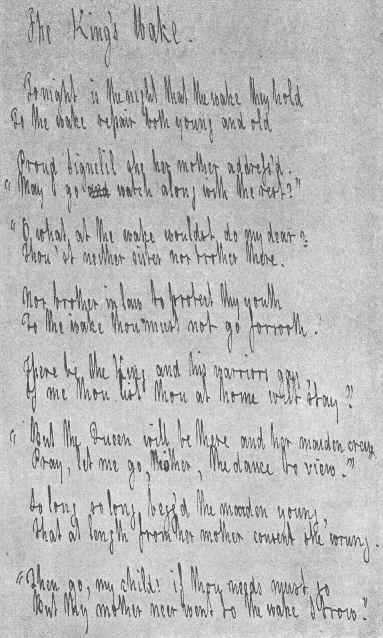 The King's Wake.
Tonight is the night that the wake they hold
To the wake repair both young and old
Proud Signelil she her mother address'd.
"May I go watch along with the rest?"
"O what, at the wake wouldst do my dear?
Thou'st neither sister nor brother there.
Nor brother in law to protect thy youth
To the wake thou must not go forsooth.
There be the King and his warriors gay,
If me thou list thou at home wilt stay?
"But the Queen will be there and her maiden crew
Pray, let me go, Mother, the dance to view."
So long so long, begg'd the maiden young,
That at length from her mother consent she wrung.
"Then go, my child! if thou needs must go
But thy mother neer went to the wake I trow."